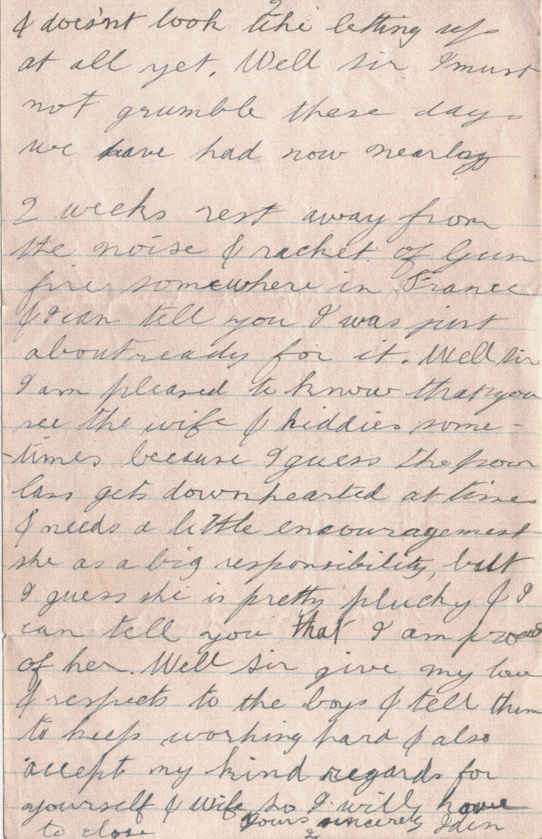 & does'nt look like letting up
at all yet. Well sir I must
not grumble these days
we have had now nearly
2 weeks rest away from
the noise & racket of Gun
fire somewhere in France
& I can tell you I was just
about ready for it. Well sir
I am pleased to know that you
see the wife & kiddies some-
-times because I guess the poor
lass gets downhearted at times
& needs a little encouragement
she as a big responsibility, but
I guess she is pretty plucky & I
can tell you that I am proud
of her. Well Sir give my love
& respects to the boys & tell them
to keep working hard & also
accept my kind regards for
yourself & wife so I will have
to close Yours sincerely